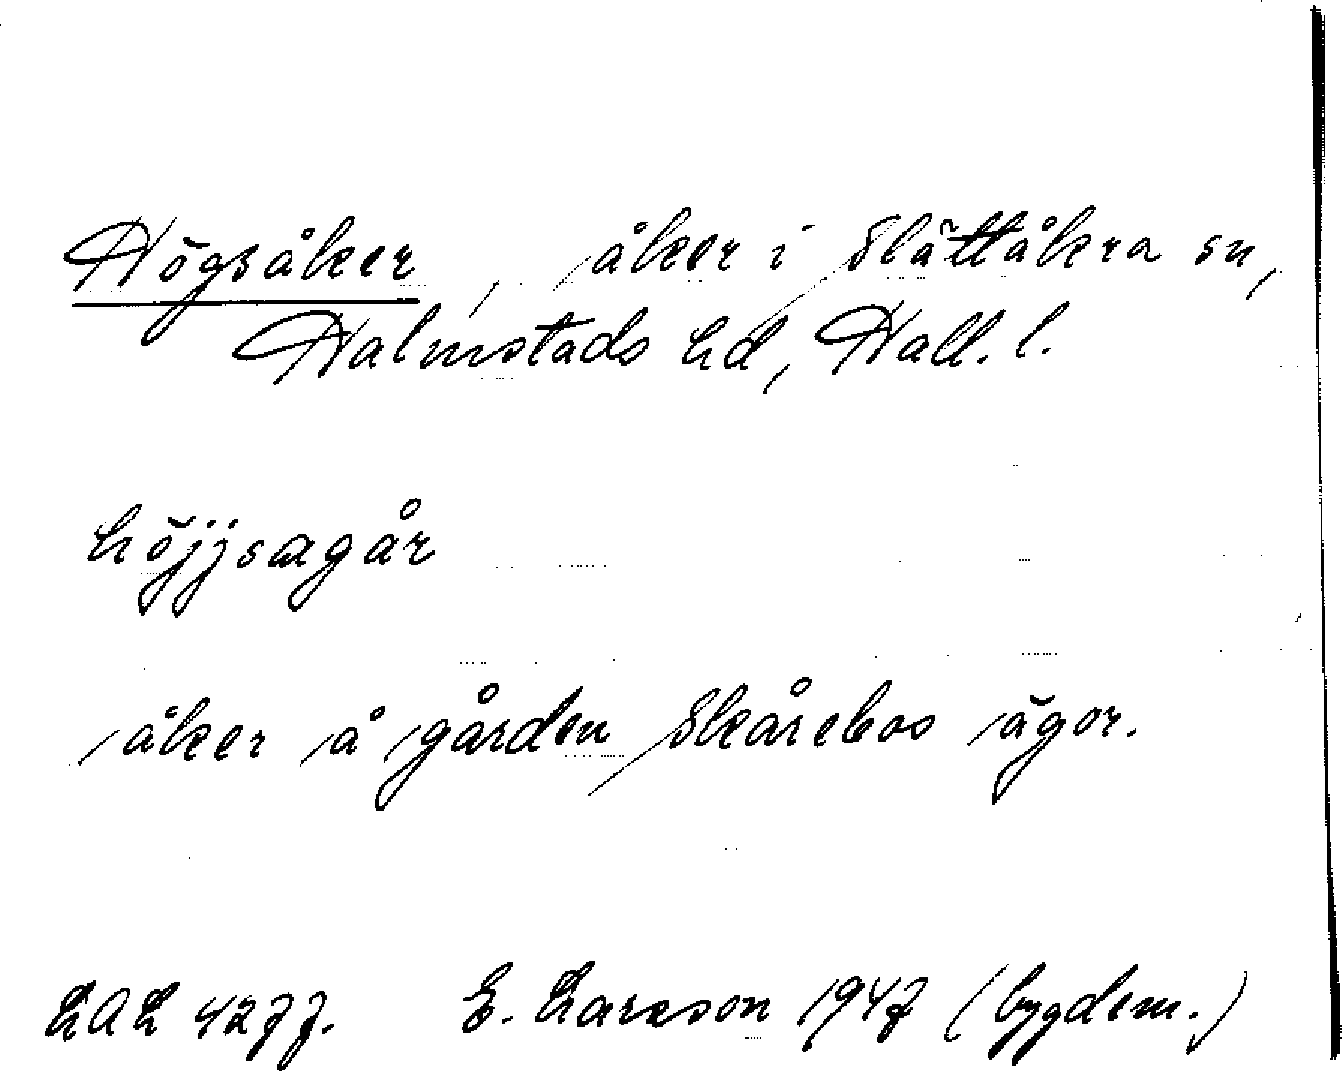 Högsåker, åker i Slättåkra sn,
Halmstads hd, Hall. l.
höjjsagår
åker å gården Skårebos ägor.
LAL 4277. E. Larsson 1947 (bygdem.)